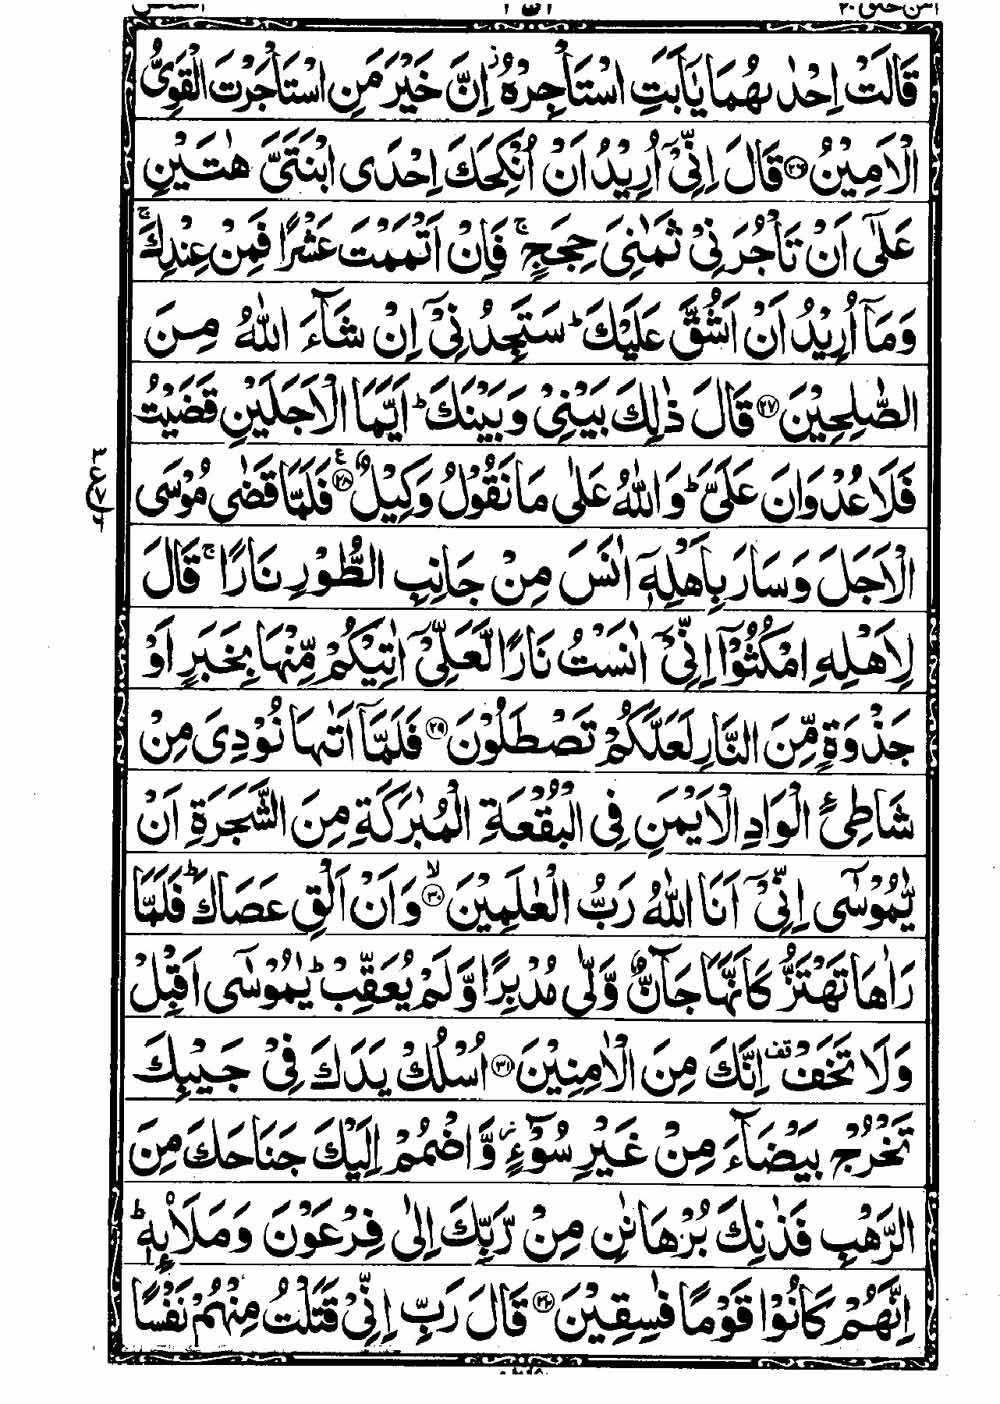 قَالَتْ اِحْدٰىهُمَا يٰۤاَبَتِ اسْتَاْجِرْهُ ؗ اِنَّ خَيْرَ مَنِ اسْتَاْجَرْتَ الْقَوِىُّ
الْاَمِيْنُ ۝۲۶ قَالَ اِنِّىْۤ اُرِيْدُ اَنْ اُنْكِحَكَ اِحْدَى ابْنَتَىَّ هٰتَيْنِ
عَلٰٓى اَنْ تَاْجُرَنِىْ ثَمٰنِىَ حِجَجٍ ۚ فَاِنْ اَتْمَمْتَ عَشْرًا فَمِنْ عِنْدِكَ ۚ
وَمَاۤ اُرِيْدُ اَنْ اَشُقَّ عَلَيْكَ ؕ سَتَجِدُنِىْۤ اِنْ شَآءَ اللّٰهُ مِنَ
الصّٰلِحِيْنَ ۝۲۷ قَالَ ذٰلِكَ بَيْنِىْ وَبَيْنَكَ ؕ اَيَّمَا الْاَجَلَيْنِ قَضَيْتُ
فَلَا عُدْوَانَ عَلَىَّ ؕ وَاللّٰهُ عَلٰى مَا نَقُوْلُ وَكِيْلٌ ۝۲۸ فَلَمَّا قَضٰى مُوْسَى
الْاَجَلَ وَسَارَ بِاَهْلِهٖۤ اٰنَسَ مِنْ جَانِبِ الطُّوْرِ نَارًا ۚ قَالَ
لِاَهْلِهِ امْكُثُوْۤا اِنِّىْۤ اٰنَسْتُ نَارًا لَّعَلِّىْۤ اٰتِيْكُمْ مِّنْهَا بِخَبَرٍ اَوْ
جَذْوَةٍ مِّنَ النَّارِ لَعَلَّكُمْ تَصْطَلُوْنَ ۝۲۹ فَلَمَّاۤ اَتٰىهَا نُوْدِىَ مِنْ
شَاطِئِ الْوَادِ الْاَيْمَنِ فِى الْبُقْعَةِ الْمُبٰرَكَةِ مِنَ الشَّجَرَةِ اَنْ
يّٰمُوْسٰۤى اِنِّىْۤ اَنَا اللّٰهُ رَبُّ الْعٰلَمِيْنَ ۝۳۰ۙ وَاَنْ اَلْقِ عَصَاكَ ؕ فَلَمَّا
رَاٰهَا تَهْتَزُّ كَاَنَّهَا جَآنٌّ وَّلّٰى مُدْبِرًا وَّلَمْ يُعَقِّبْ ؕ يٰمُوْسٰۤى اَقْبِلْ
وَلَا تَخَفْ قف اِنَّكَ مِنَ الْاٰمِنِيْنَ ۝۳۱ اُسْلُكْ يَدَكَ فِىْ جَيْبِكَ
تَخْرُجْ بَيْضَآءَ مِنْ غَيْرِ سُوْٓءٍ ؗ وَّاضْمُمْ اِلَيْكَ جَنَاحَكَ مِنَ
الرَّهْبِ فَذٰنِكَ بُرْهَانٰنِ مِنْ رَّبِّكَ اِلٰى فِرْعَوْنَ وَمَلَا۟ئِهٖ ؕ
اِنَّهُمْ كَانُوْا قَوْمًا فٰسِقِيْنَ ۝۳۲ قَالَ رَبِّ اِنِّىْ قَتَلْتُ مِنْهُمْ نَفْسًا